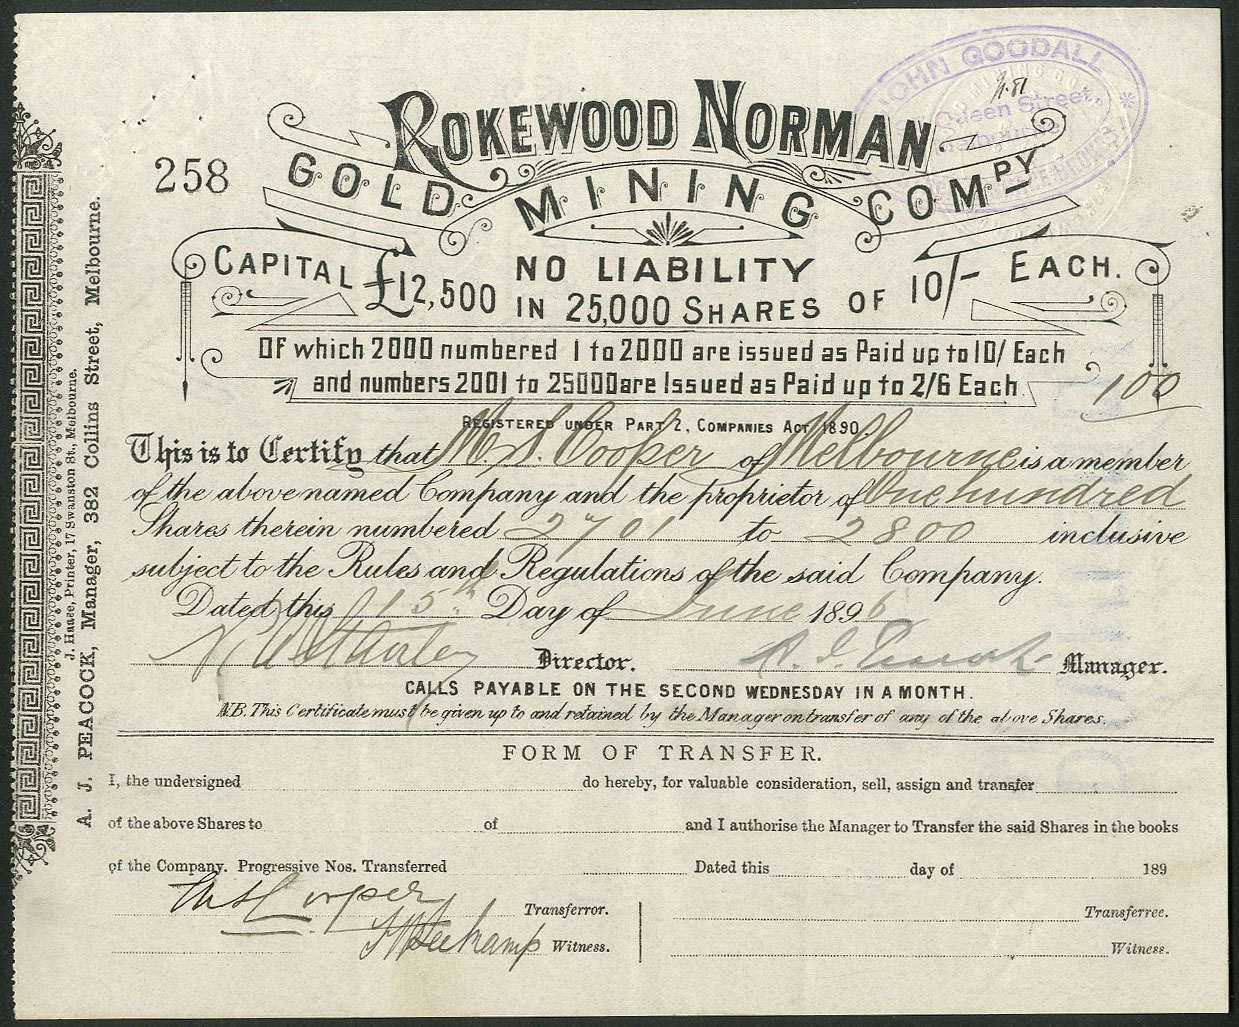 JOHN GOODALL
Queen Street
258
ROKEWOOD NORMAN
GOLD MINING COMPY
NO LIABILITY
CAPITAL £12,500 IN 25,000 SHARES OF 10/- EACH.
Of which 2000 numbered 1 to 2000 are issued as Paid up to 10/ Each
and numbers 2001 to 25000 are Issued as Paid up to 2/6 Each.
100
REGISTERED UNDER PART 2, COMPANIES ACT 1890
This is to Certify that M. S. Cooper of Melbourne is a member
of the above named Company and the proprietor of One hundred
Shares therein numbered 2701 to 2800 inclusive
subject to the Rules and Regulations of the said Company.
Dated this 15th Day of June 1896
Director. Manager.
CALLS PAYABLE ON THE SECOND WEDNESDAY IN A MONTH.
N.B. This Certificate must be given up to and retained by the Manager on transfer of any of the above Shares.
FORM OF TRANSFER.
I, the undersigned do hereby, for valuable consideration, sell, assign and transfer
of the above Shares to of and I authorise the Manager to Transfer the said Shares in the books
of the Company. Progressive Nos. Transferred Dated this day of 189
Cooper Transferror. Transferree.
Witness. Witness.
J. Haase, Printer, 17 Swanston St., Melbourne.
A. J. PEACOCK, Manager, 382 Collins Street, Melbourne.